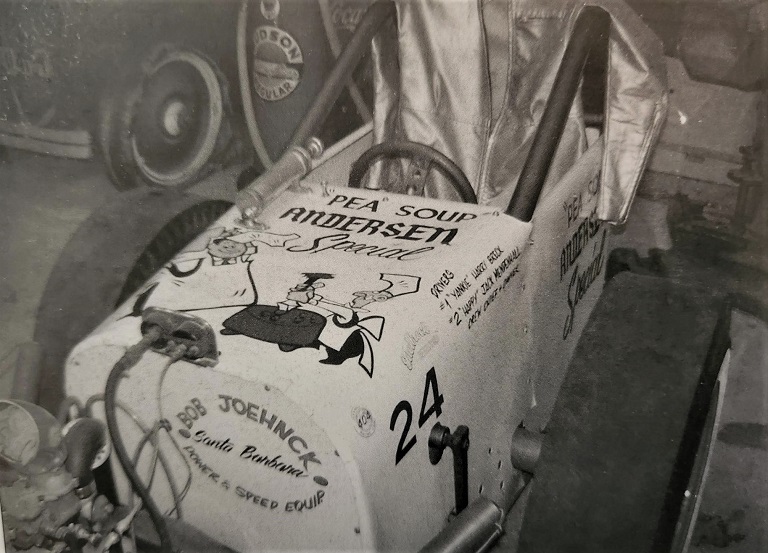 HUDSON
"PEA" SOUP
ANDERSEN
Special
DRIVERS
#1 "YANKIE" HARRY BRICK
#2 "HAPPY" JACK MENDENHALL
"PEA" SOUP
ANDERSEN
Special
24
BOB JOEHNCK
Santa Barbara
POWER & SPEED EQUIP.